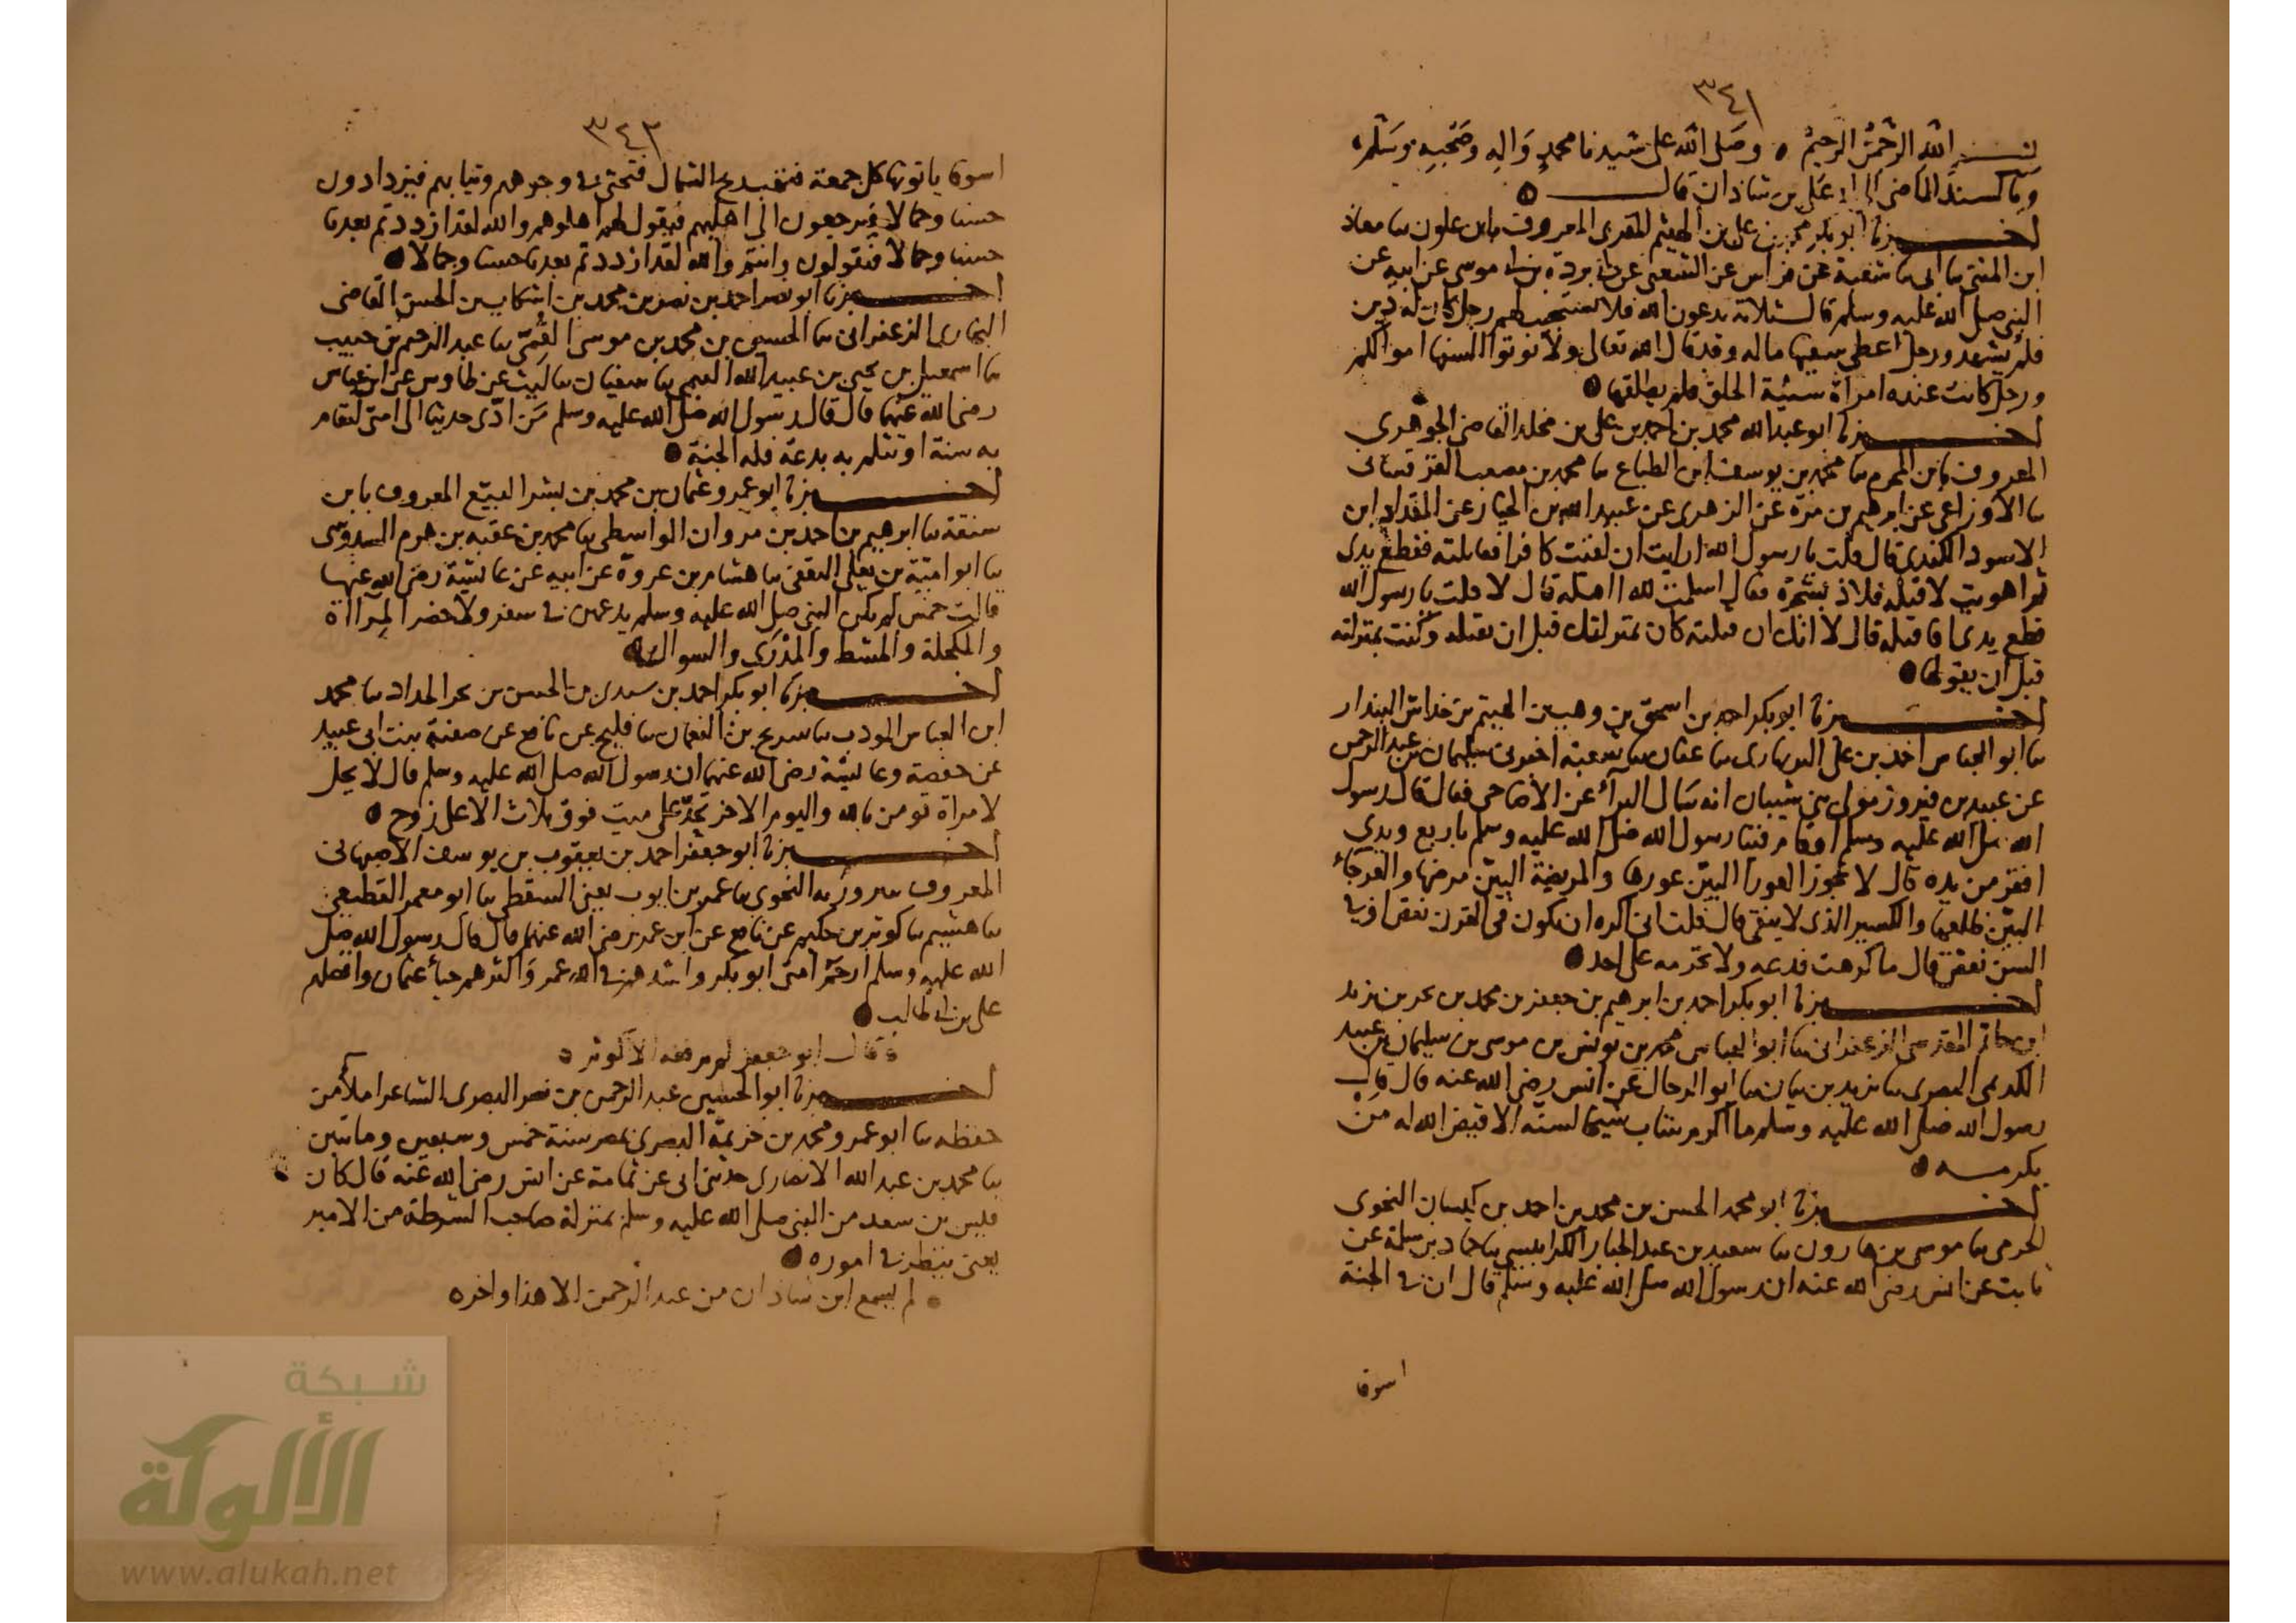 ٣٤١
بسم الله الرحمن الرحيم وصلى الله على سيدنا محمد واله وصحبه وسلم
وبالسند الماضي الى ابي علي بن شاذان قال
اخبرنا ابو بكر محمد بن علي بن الهيثم المقري المعروف بابن علون سا معاذ
ابن المثنى سا ابي سا شعبة عن فراس عن الشعبي عن ابي بردة بن ابي موسى عن ابيه عن
النبي صلى الله عليه وسلم قال ثلاثة يدعون الله فلا يستجيب لهم رجل كان له دين
فلم يشهد ورجل اعطى سفيها ماله وقد قال الله تعالى ولا توتوا السفها اموالكم
ورجل كانت عنده امراة سيئة الخلق فلم يطلقها
اخبرنا ابو عبد الله محمد بن احمد بن علي بن مخلد القاضي الجوهري
المعروف بابن المحرم سا محمد بن يوسف ابن الطباع سا محمد بن مصعب القرقساني
سا الاوزاعي عن ابرهيم بن مرة عن الزهري عن عبيد الله بن الخيار عن المقداد ابن
الاسود الكندي قال قلت يا رسول الله ارايت ان لقيت كافرا فقاتلته فقطع يدي
ثم اهويت لاقتله فلاذ بشجرة فقال اسلمت لله ااقتله قال لا قلت يا رسول الله
قطع يدي افاقتله قال لا انك ان قتلته كان بمنزلتك قبل ان تقتله وكنت بمنزلته
قبل ان يقولها
اخبرنا ابو بكر احمد بن اسحق بن وهب بن الهيثم بن خداش البندار
سا ابو العباس احمد بن علي البربهاري سا عفان سا شعبة اخبرني سليمان بن عبد الرحمن
عن عبيد بن فيروز مولى بني شيبان انه سال البرآء عن الاضاحي فقال قال رسول
الله صلى الله عليه وسلم او قام فينا رسول الله صلى الله عليه وسلم باربع ويدي
اقصر من يده قال لا تجوز العورا البين عورها والمريضة البين مرضها والعرجاء
البين ظلعها والكسير الذي لا ينقى قال قلت اني اكره ان يكون في القرن نقص او في
السن نقص قال ما كرهت فدعه ولا تحرمه على احد
اخبرنا ابو بكر احمد بن ابرهيم بن جعفر بن محمد بن بحر بن يزيد
ابن حاتم المقدسي الزعفراني سا ابو العباس محمد بن يونس بن موسى بن سليمان بن عبيد
الكديمي البصري سا يزيد بن بيان سا ابو الرحال عن انس رضي الله عنه قال قال
رسول الله صلى الله عليه وسلم ما اكرم شاب شيخا لسنه الا قيض الله له من
يكرمه
اخبرنا ابو محمد الحسن بن محمد بن احمد بن كيسان النحوي
الحرمي سا موسى بن هارون سا سعيد بن عبد الجبار الكرابيسي سا حماد بن سلمة عن
ثابت عن انس رضي الله عنه ان رسول الله صلى الله عليه وسلم قال ان في الجنة
اسوقا
٣٤٢
اسوقا ياتونها كل جمعة فتهب ريح الشمال فتحثى في وجوههم وثيابهم فيزدادون
حسنا وجمالا فيرجعون الى اهليهم فيقول لهم اهلوهم والله لقد ازددتم بعدنا
حسنا وجمالا فيقولون وانتم والله لقد ازددتم بعدنا حسنا وجمالا
اخبرنا ابو نصر احمد بن نصر بن محمد بن اشكاب بن الحسن القاضي
البخاري الزعفراني سا الحسين بن محمد بن موسى القمي سا عبد الرحيم بن حبيب
سا اسمعيل بن يحيى بن عبيد الله التيمي سا سفيان سا ليث عن طاوس عن ابن عباس
رضي الله عنهما قال قال رسول الله صلى الله عليه وسلم من ادى حديثا الى امتي لتقام
به سنة او تثلم به بدعة فله الجنة
اخبرنا ابو عمرو عثمان بن محمد بن بشر البيع المعروف بابن
سنقة سا ابرهيم بن احمد بن مروان الواسطي سا محمد بن عقبة بن هرم السدوسي
سا ابو امية بن يعلى الثقفي سا هشام بن عروة عن ابيه عن عايشة رضي الله عنها
قالت خمس لم يكن النبي صلى الله عليه وسلم يدعهن في سفر ولا حضر المرآاة
والمكحلة والمشط والمدرى والسواك
اخبرنا ابو بكر احمد بن سندي بن الحسن بن بحر الحداد سا محمد
ابن العباس المودب سا سريج بن النعمان سا فليح عن نافع عن صفية بنت ابي عبيد
عن حفصة وعايشة رضي الله عنهما ان رسول الله صلى الله عليه وسلم قال لا يحل
لامراة تومن بالله واليوم الاخر تحد على ميت فوق ثلاث الا على زوج
اخبرنا ابو جعفر احمد بن يعقوب بن يوسف الاصبهاني
المعروف ببرزويه النحوي سا عمر بن ايوب يعني السقطي سا ابو معمر القطيعي
سا هشيم سا كوثر بن حكيم عن نافع عن ابن عمر رضي الله عنهما قال قال رسول الله صلى
الله عليه وسلم ارحم امتي ابو بكر واشدهم في الله عمر واكثرهم حياء عثمان واقضاهم
علي بن ابي طالب
وقال ابو جعفر لم يرفعه الا كوثر
اخبرنا ابو الحسين عبد الرحمن بن نصر البصري الشاعر املاء من
حفظه سا ابو عمرو محمد بن خزيمة البصري بمصر سنة خمس وسبعين ومايتين
سا محمد بن عبد الله الانصاري حدثني ابي عن ثمامة عن انس رضي الله عنه قال كان
قيس بن سعد من النبي صلى الله عليه وسلم بمنزلة صاحب الشرطة من الامير
يعني ينظر في اموره
لم يسمع ابن شاذان من عبد الرحمن الا هذا واخره
شبكة
الألوكة
www.alukah.net